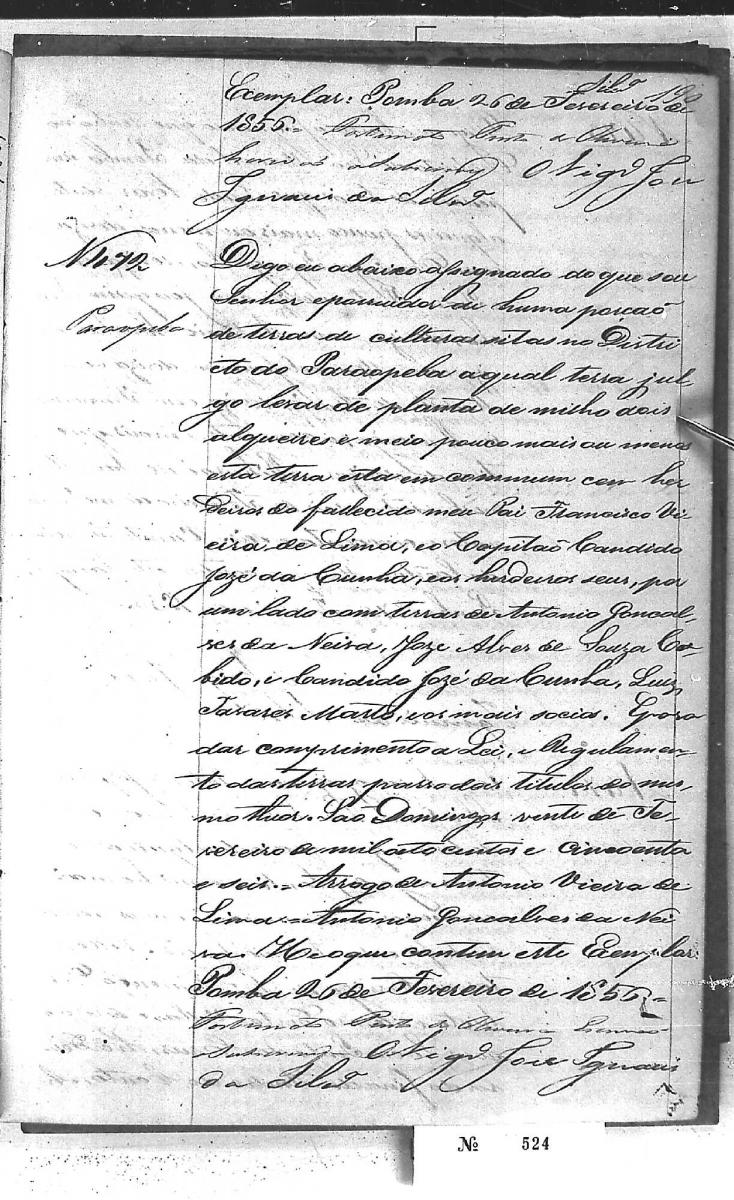 Silvª 190
Exemplar: Pomba 26 de Fevereiro de
1856 = Fortunato Pinto de Oliveira
o subscrevy O Vigrº Joze
Ignacio da Silvª
N 472
Paraopeba
Digo eu abaixo assignado do que sou
Senhor e possuidor de huma porcaõ
de terras de culturas sitas no Distri
cto do Paraopeba a qual terra jul-
go levar de planta de milho dois
alqueires e meio pouco mais ou menos
esta terra esta em commum com her
deiros do fallecido meu Pai Francisco Vi-
eira de Lima, e o Capitaõ Candido
Jozé da Cunha, e os herdeiros seus, por
um lado com terras de Antonio Goncal-
ves da Neiva, Joze Alves de Souza Ca-
bido, e Candido Jozé da Cunha, Luiz
Tavares Marto, e os mais socios. E para
dar comprimento a Lei, e Regulamen-
to das terras passo dois titulos do mes-
mo theor. Saõ Domingos vente de Fe-
vereiro de mil oito centos e cincoenta
e seis. = Arrogo de Antonio Vieira de
Lima = Antonio Goncalves da Nei
va. He o que contem este Exemplar:
Pomba 26 de Fevereiro de 1856 =
Fortunato Pinto de Oliveira
subscrevy O Vigrº Joze Ignacio
da Silvª
Nº 524